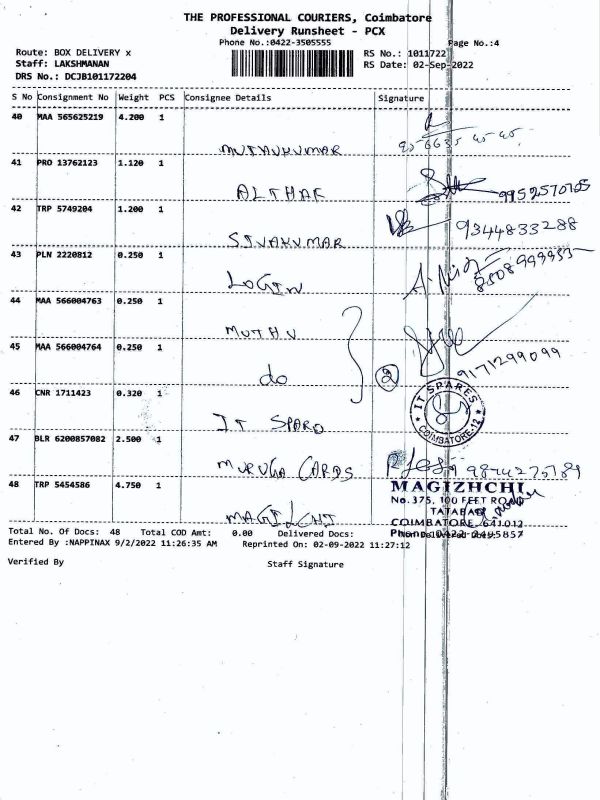 THE PROFESSIONAL COURIERS, Coimbatore
Delivery Runsheet - PCX
Phone No.:0422-3505555
Page No.:4
Route: BOX DELIVERY x
RS No.: 1011722
Staff: LAKSHMANAN
RS Date: 02-Sep-2022
DRS No.: DCJB101172204
S No Consignment No Weight PCS Consignee Details Signature
40 MAA 565625219 4.200 1 MUTHUKUMAR
41 PRO 13762123 1.120 1 ALTHAF 9952570705
42 TRP 5749204 1.200 1 SIVAKUMAR 9344833288
43 PLN 2220812 0.250 1 LOGIN
44 MAA 566004763 0.250 1 MUTHU
45 MAA 566004764 0.250 1 do 2 9171299099
46 CNR 1711423 0.320 1 IT SPARO
IT SPARES
COIMBATORE-12
47 BLR 6200857082 2.500 1 MURUGA CARDS
48 TRP 5454586 4.750 1 MAGILCHI
MAGIZHCHI
No.375, 100 FEET ROAD
TATABAD
COIMBATORE 641012
Phone: 0422-2495857
Total No. Of Docs: 48 Total COD Amt: 0.00 Delivered Docs:
Entered By :NAPPINAX 9/2/2022 11:26:35 AM Reprinted On: 02-09-2022 11:27:12
Verified By Staff Signature